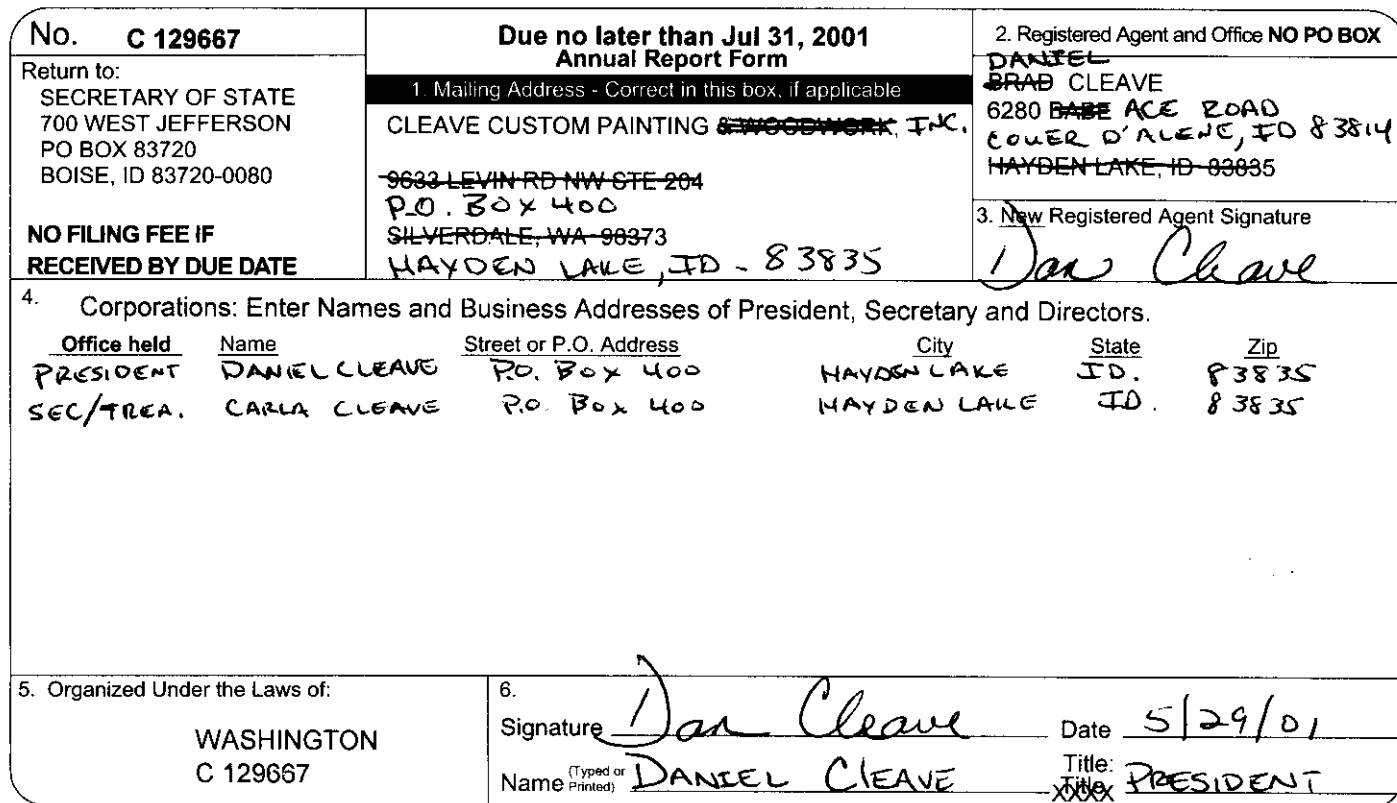 No. C 129667
Return to:
SECRETARY OF STATE
700 WEST JEFFERSON
PO BOX 83720
BOISE, ID 83720-0080
NO FILING FEE IF
RECEIVED BY DUE DATE
Due no later than Jul 31, 2001
Annual Report Form
1. Mailing Address - Correct in this box, if applicable
CLEAVE CUSTOM PAINTING & WOODWORK, INC.
9633 LEVIN RD NW STE 204
P.O. BOX 400
SILVERDALE, WA 98373
HAYDEN LAKE, ID - 83835
2. Registered Agent and Office NO PO BOX
DANIEL
BRAD CLEAVE
6280 BABE ACE ROAD
COUER D'ALENE, ID 83814
HAYDEN LAKE, ID 83835
3. New Registered Agent Signature
Dan Cleave
4. Corporations: Enter Names and Business Addresses of President, Secretary and Directors.
Office held Name Street or P.O. Address City State Zip
PRESIDENT DANIEL CLEAVE P.O. BOX 400 HAYDEN LAKE ID. 83835
SEC/TREA. CARLA CLEAVE P.O. BOX 400 HAYDEN LAKE ID. 83835
5. Organized Under the Laws of:
WASHINGTON
C 129667
6.
Signature Dan Cleave Date 5/29/01
Name (Typed or Printed) DANIEL CLEAVE Title: PRESIDENT
Title